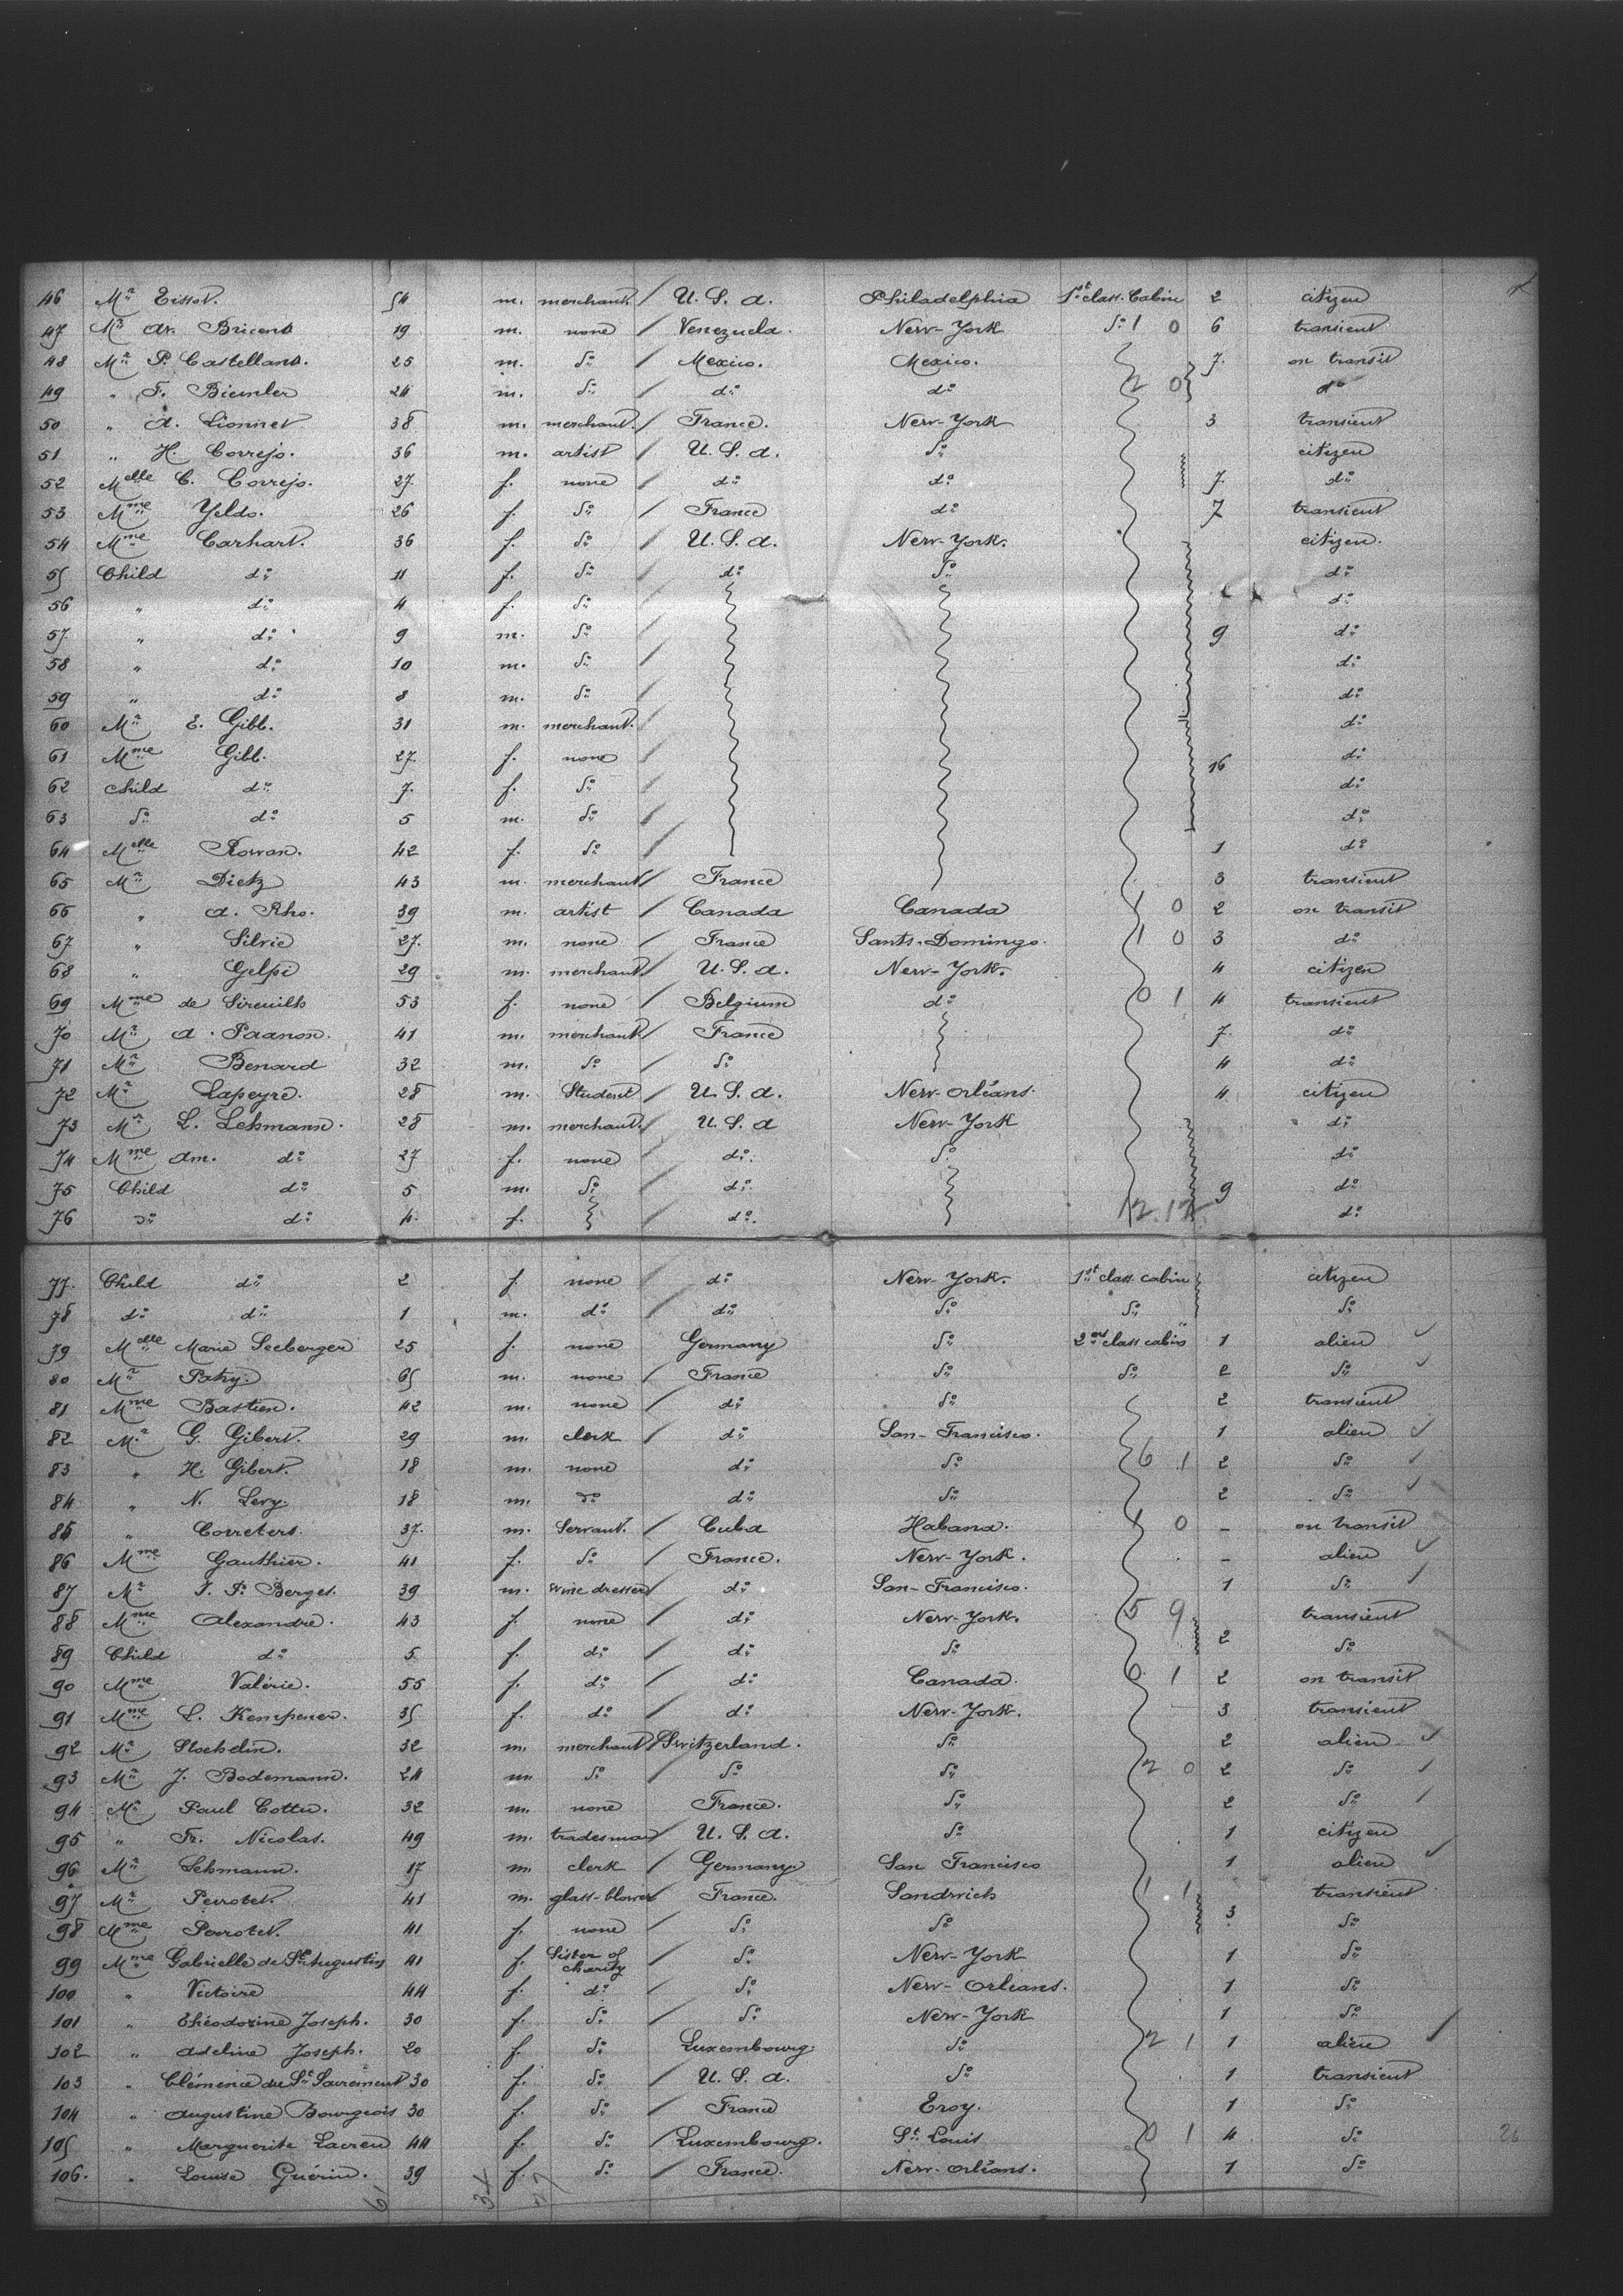 46 Mr Tissot. 54 m. merchant. U. S. a. Philadelphia 1st class. Cabin 2 citizen
47 Mr Ar. Bricent 19 m. none Venezuela. New-York do 1 0 6 transient
48 Mr P. Castellano. 25 m. do Mexico. Mexico. 7. on transit
49 " F. Biemler 24 m. do do do 2 0 do
50 " A. Lionnet 38 m. merchant. France. New-York 3 transient
51 " H. Correjo. 36 m. artist U. S. a. do citizen
52 Melle C. Correjo. 27. f. none do do 7. do
53 Mme Yeldo. 26 f. do France do 7 transient
54 Mme Carhart. 36 f. do U. S. a. New-York. citizen.
55 Child do 11 f. do do do do
56 " do 4 f. do do
57. " do 9 m. do 9 do
58 " do 10 m. do do
59 " do 8 m. do do
60 Mr E. Gibb. 31 m. merchant. do
61 Mme Gibb. 27. f. none 16 do
62 child do 7. f. do do
63 do do 5 m. do do
64 Melle Rowan. 42 f. do 1 do
65 Mr Dietz 43 m. merchant France 3 transient
66 " A. Rho. 39 m. artist Canada Canada 1 0 2 on transit
67 " Silvie 27. m. none France Santo-Domingo. 1 0 3 do
68 " Gelpi 29 m. merchant U. S. a. New-York. 4 citizen
69 Mme de Sireuilh 53 f. none Belgium do 0 1 4 transient
70 Mr A. Paanon. 41 m. merchant France 7. do
71 Mr Benard 32 m. do do 4 do
72 Mr Lapeyre. 28 m. Student U. S. a. New-Orléans. 4 citizen
73 Mr L. Lehmann. 28 m. merchant. U. S. a New-York do
74 Mme Am. do 27 f. none do. do do
75 Child do 5 m. do do. 9 do
76 do do 4. f. do. 12.12 do
77. Child do 2 f. none do New-York. 1st class. cabin citizen
78 do do 1 m. do do do do do
79 Melle Marie Seeberger 25 f. none Germany do 2nd class cabin 1 alien
80 Mr Patry. 65 m. none France do do 2 do
81 Mme Bastien. 42 m. none do do 2 transient
82 Mr G. Gibert. 29 m. clerk do San-Francisco. 1 alien
83 " H. Gibert. 18 m. none do do 6 1 2 do
84 " N. Levy. 18 m. do do do 2 do
85 " Correters. 37. m. Servant. Cuba Habana. 1 0 - on transit
86 Mme Gauthier. 41 f. do France. New-York. - alien
87 Mr J. P. Berges. 39 m. wine dresser do San-Francisco. 1 do
88 Mme Alexandre. 43 f. none do New-York. 5 9 transient
89 Child do 5 f. do do do 2 do
90 Mme Valérie. 55 f. do do Canada. 0 1 2 on transit
91 Mme L. Kempener. 35 f. do do New-York. 3 transient
92 Mr Stochelin. 32 m. merchant Switzerland. do 2 alien
93 Mr J. Bodemann. 24 m do do do 2 0 2 do
94 Mr Paul Cottu. 32 m. none France. do 2 do
95 " Fr. Nicolas. 49 m. tradesman U. S. a. do 1 citizen
96 Mr Lehmann. 17 m. clerk Germany San Francisco 1 alien
97 Mr Perrotet. 41 m. glass-blower France. Sandwich 1 1 transient
98 Mme Perrotet. 41 f. none do do 3 do
99 Mme Gabrielle de St Augustin 41 f. Sister of charity do New-York 1 do
100 " Victoire 44 f. do do New-Orleans. 1 do
101 " Théodorine Joseph. 30 f. do do New-York 1 do
102 " Adeline Joseph. 20 f. do Luxembourg. do 2 1 1 alien
103 " Clémence du St Sacrement 30 f. do U. S. a. do 1 transient
104 " Augustine Bourgeois 30 f. do France Troy. 1 do
105 " Marguerite Lacreu 44 f. do Luxembourg. St Louis 0 1 4 do 26
106. " Louise Guérin. 39 f. do France. New-Orléans. 1 do
61 34 27